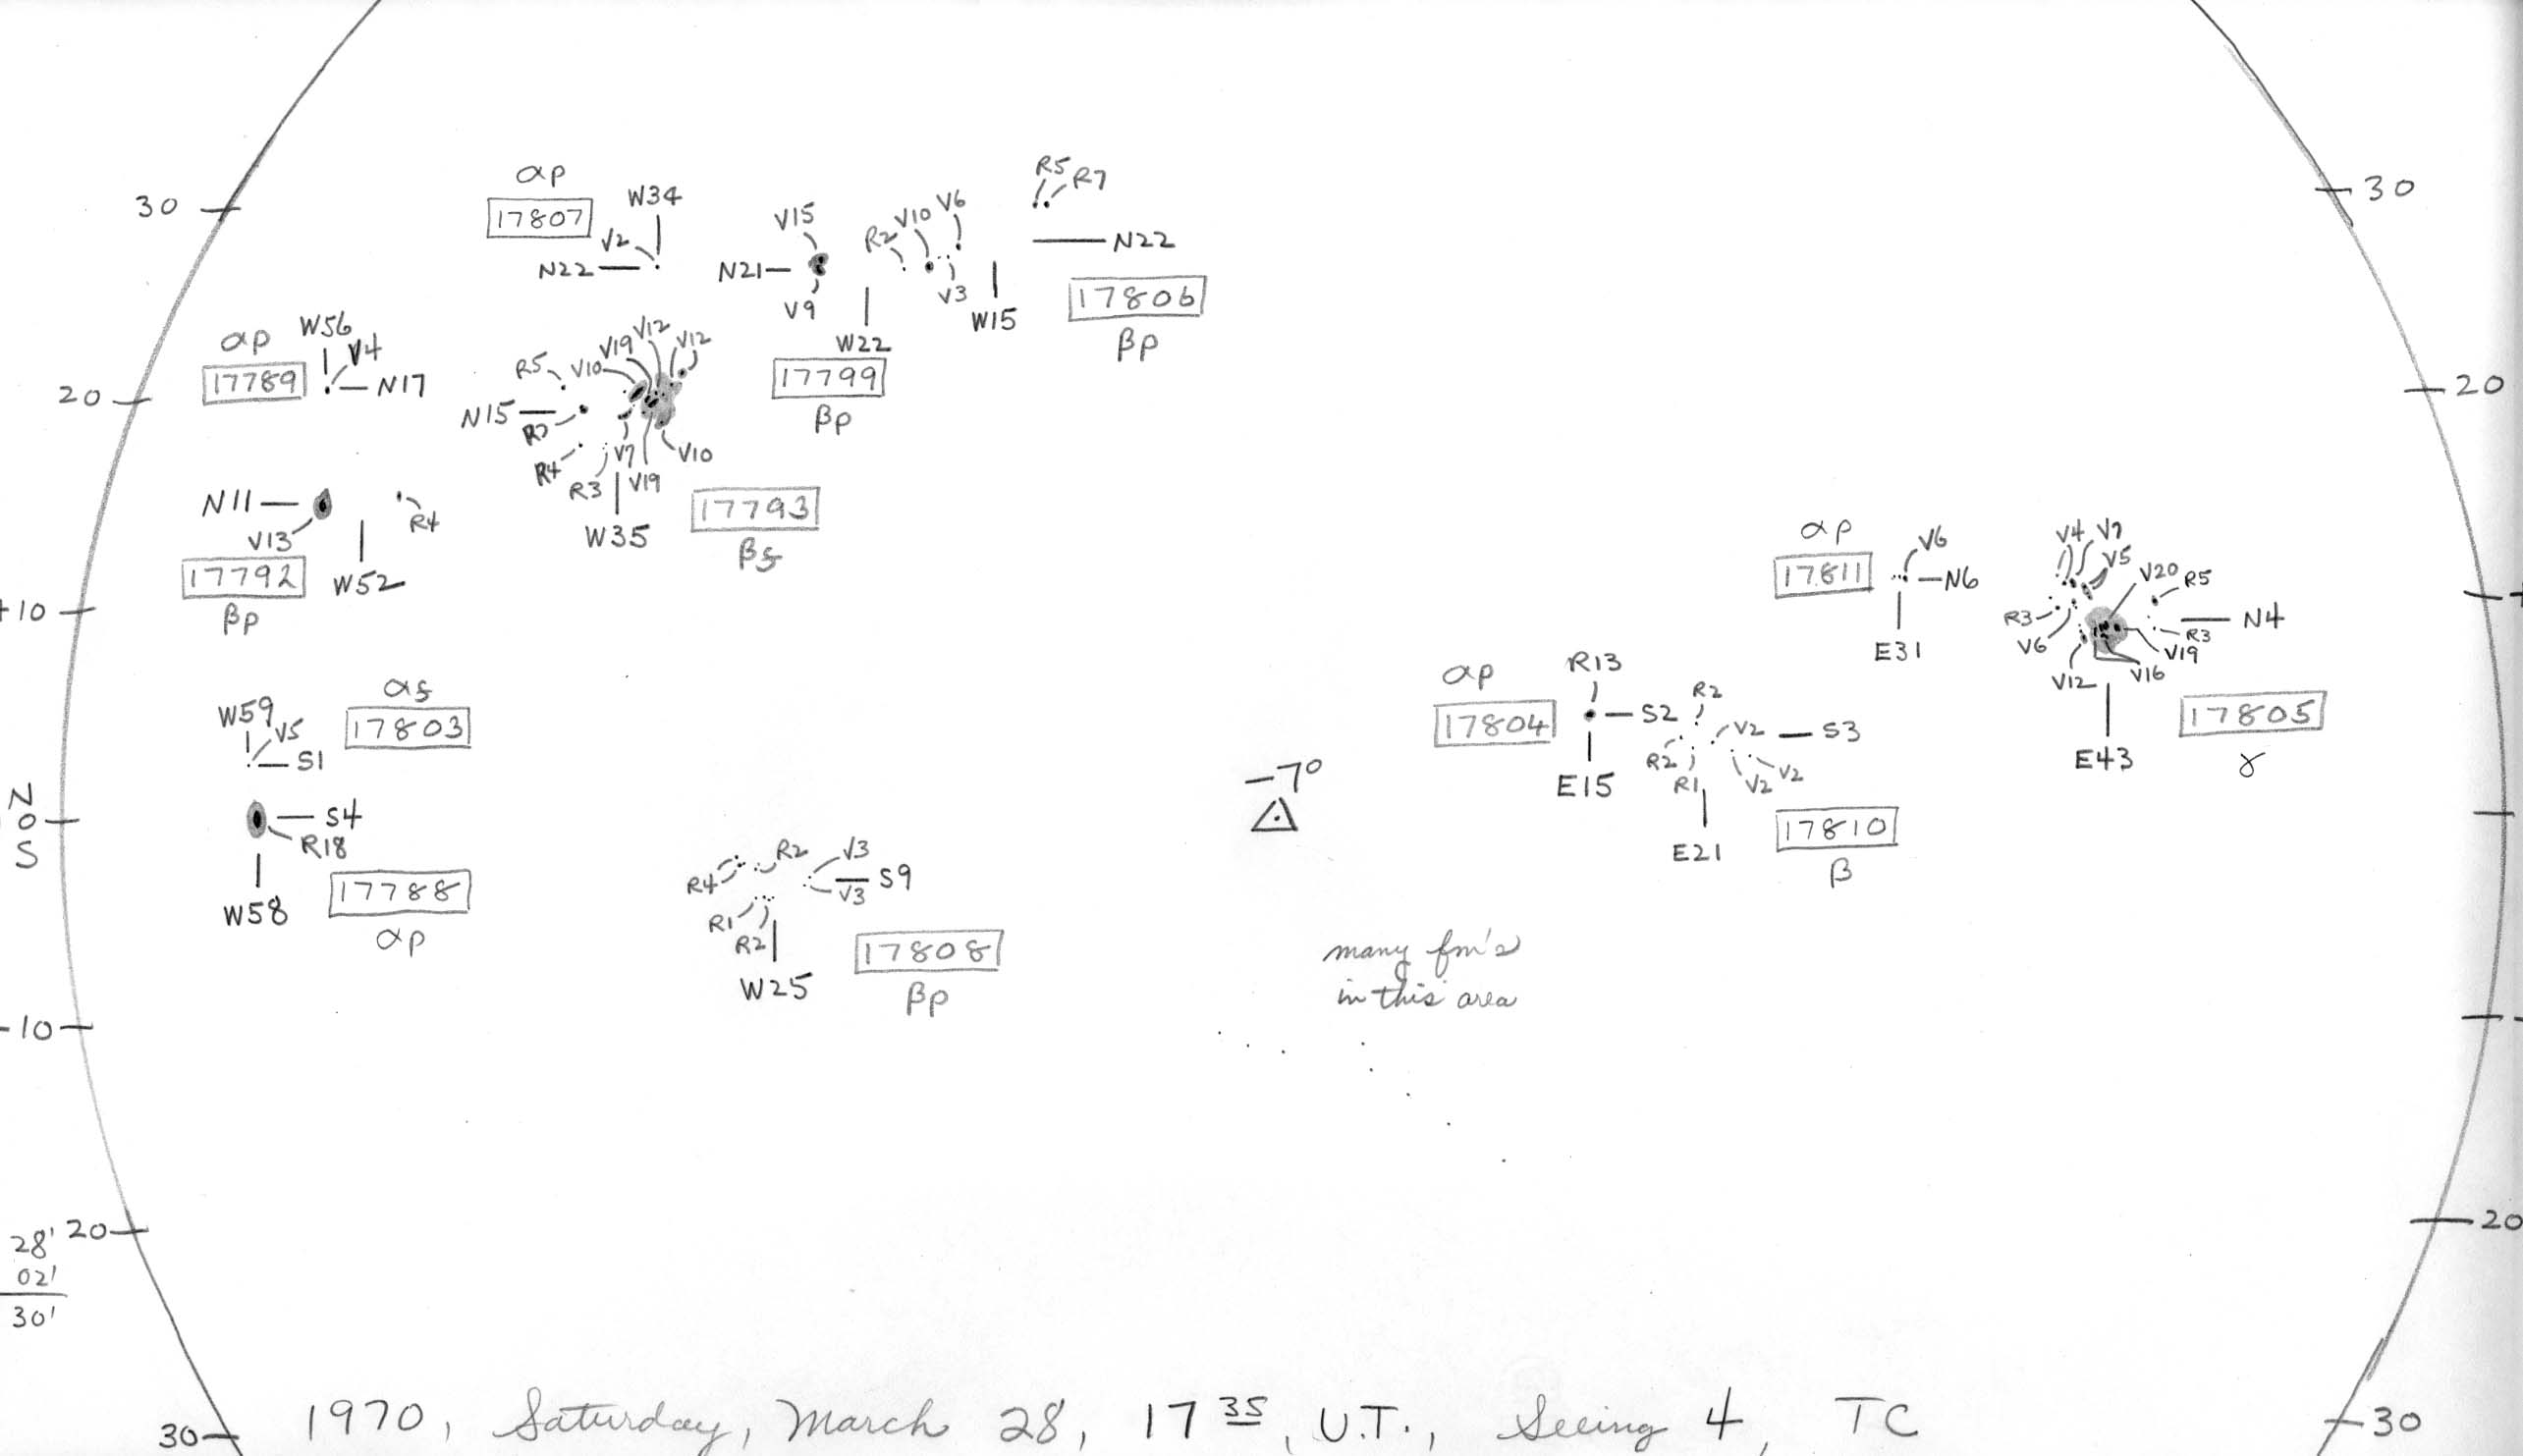 αp
17807
W34
V2
N22
V15
N21
V9
W22
17799
βp
R2
V10
V6
V3
W15
R5
R7
N22
17806
βp
30
30
αp
W56
V4
17789
N17
20
20
R5
V10
V19
V12
V12
N15
R7
R4
R3
V7
V19
V10
W35
17793
βf
N11
V13
R4
17792
W52
βp
+10
αp
17811
V6
N6
E31
V4
V7
V5
V20
R5
R3
V6
N4
R3
V19
V16
V12
E43
17805
γ
αf
W59
V5
17803
S1
αp
R13
17804
S2
E15
R2
V2
S3
R2
R1
V2
V2
E21
17810
β
N
0
S
S4
R18
W58
17788
αp
-7°
R4
R2
V3
S9
V3
R1
R2
W25
17808
βp
many fm's
in this area
-10
20
20
28'
02'
30'
30
30
1970, Saturday, March 28, 17 35, U.T., Seeing 4, TC